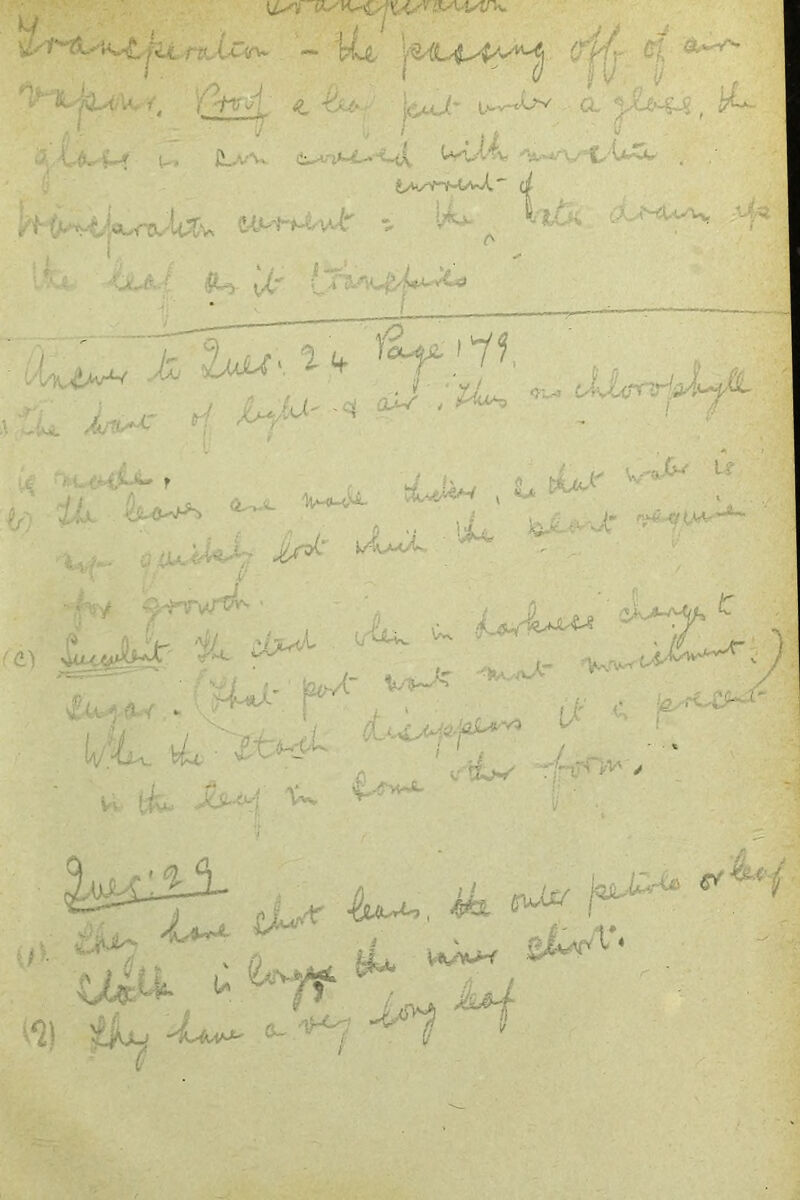 Transpiration
Transpiration - the passing off of air
vapour. Proof a leaf put under a glass, the
glass is covered with moisture.
current
transpiration current = the of water drawn up
the leaf as it transpires
Answer to Ques. 24 Page 179.
The want of light & air. Thus no chlorophyll
is made.
b) The leaves are made thicker, so that water is
not quickly lost which the plant requires
for growth.
(c) Succulent The starch when in darkness changes to
sugar. (That part wants most nourishment.)
When the starch disappears it is present
in the leaf in some other form.
Ques: 29
(1) They have short leaves, the outer petiole or leaf
stalk is longer the inner short.
(2) They have a very long leaf